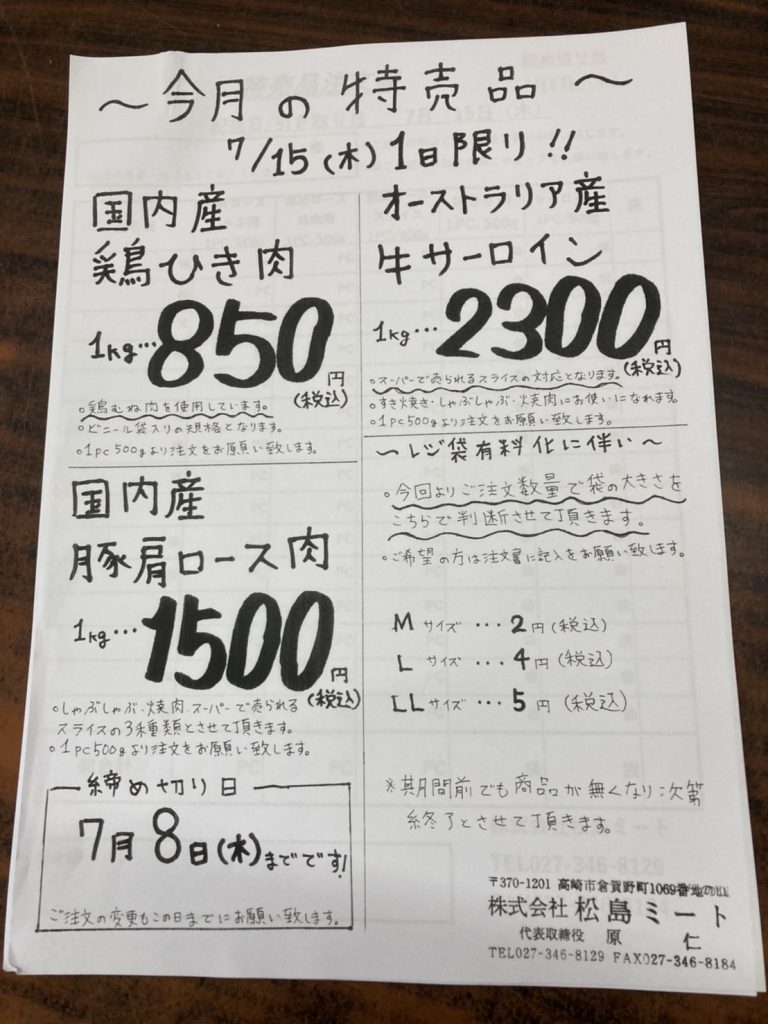 ～今月の特売品～
7/15(木)1日限り!!
国内産
鶏ひき肉
1kg…850円
(税込)
。鶏むね肉を使用しています。
。ビニール袋入りの規格となります。
。1pc500gより注文をお願い致します。
オーストラリア産
牛サーロイン
1kg…2300円
(税込)
。スーパーで売られるスライスの対応となります。
。すき焼き・しゃぶしゃぶ・焼肉にお使いになれます。
。1pc500gより注文をお願い致します。
国内産
豚肩ロース肉
1kg…1500円
(税込)
。しゃぶしゃぶ・焼肉・スーパーで売られる
スライスの3種類とさせて頂きます。
。1pc500gより注文をお願い致します。
～レジ袋有料化に伴い～
。今回よりご注文数量で袋の大きさを
こちらで判断させて頂きます。
。ご希望の方は注文書に記入をお願い致します。
Mサイズ…2円(税込)
Lサイズ…4円(税込)
LLサイズ…5円(税込)
締め切り日
7月8日(木)までです!
ご注文の変更もこの日までにお願い致します。
※期間前でも商品が無くなり次第
終了とさせて頂きます。
〒370-1201 高崎市倉賀野町1069番地の
株式会社 松島ミート
代表取締役 原 仁
TEL027-346-8129 FAX027-346-8184